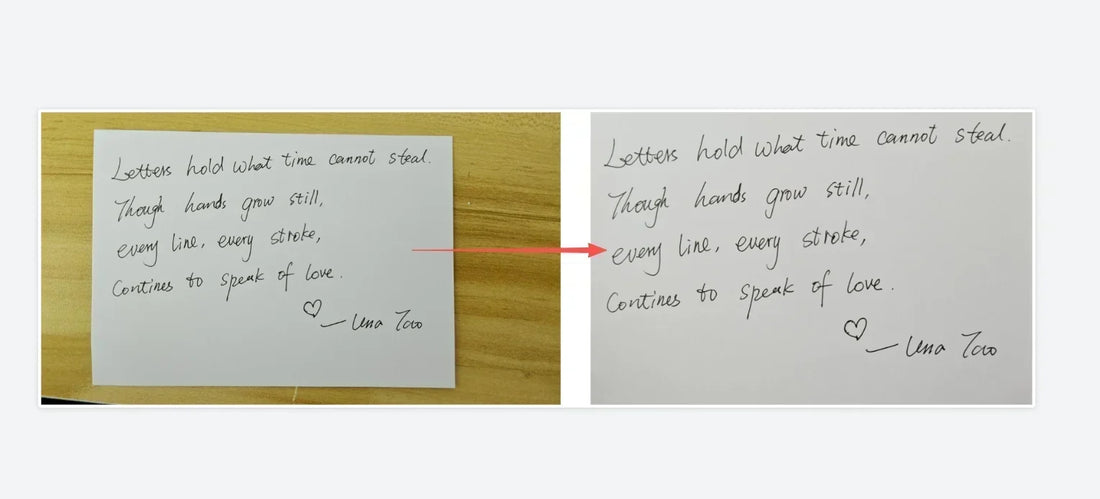 Letters hold what time cannot steal.
Though hands grow still,
every line, every stroke,
Contines to speak of love.
♡ —
Letters hold what time cannot steal.
Though hands grow still,
every line, every stroke,
Contines to speak of love.
♡ —